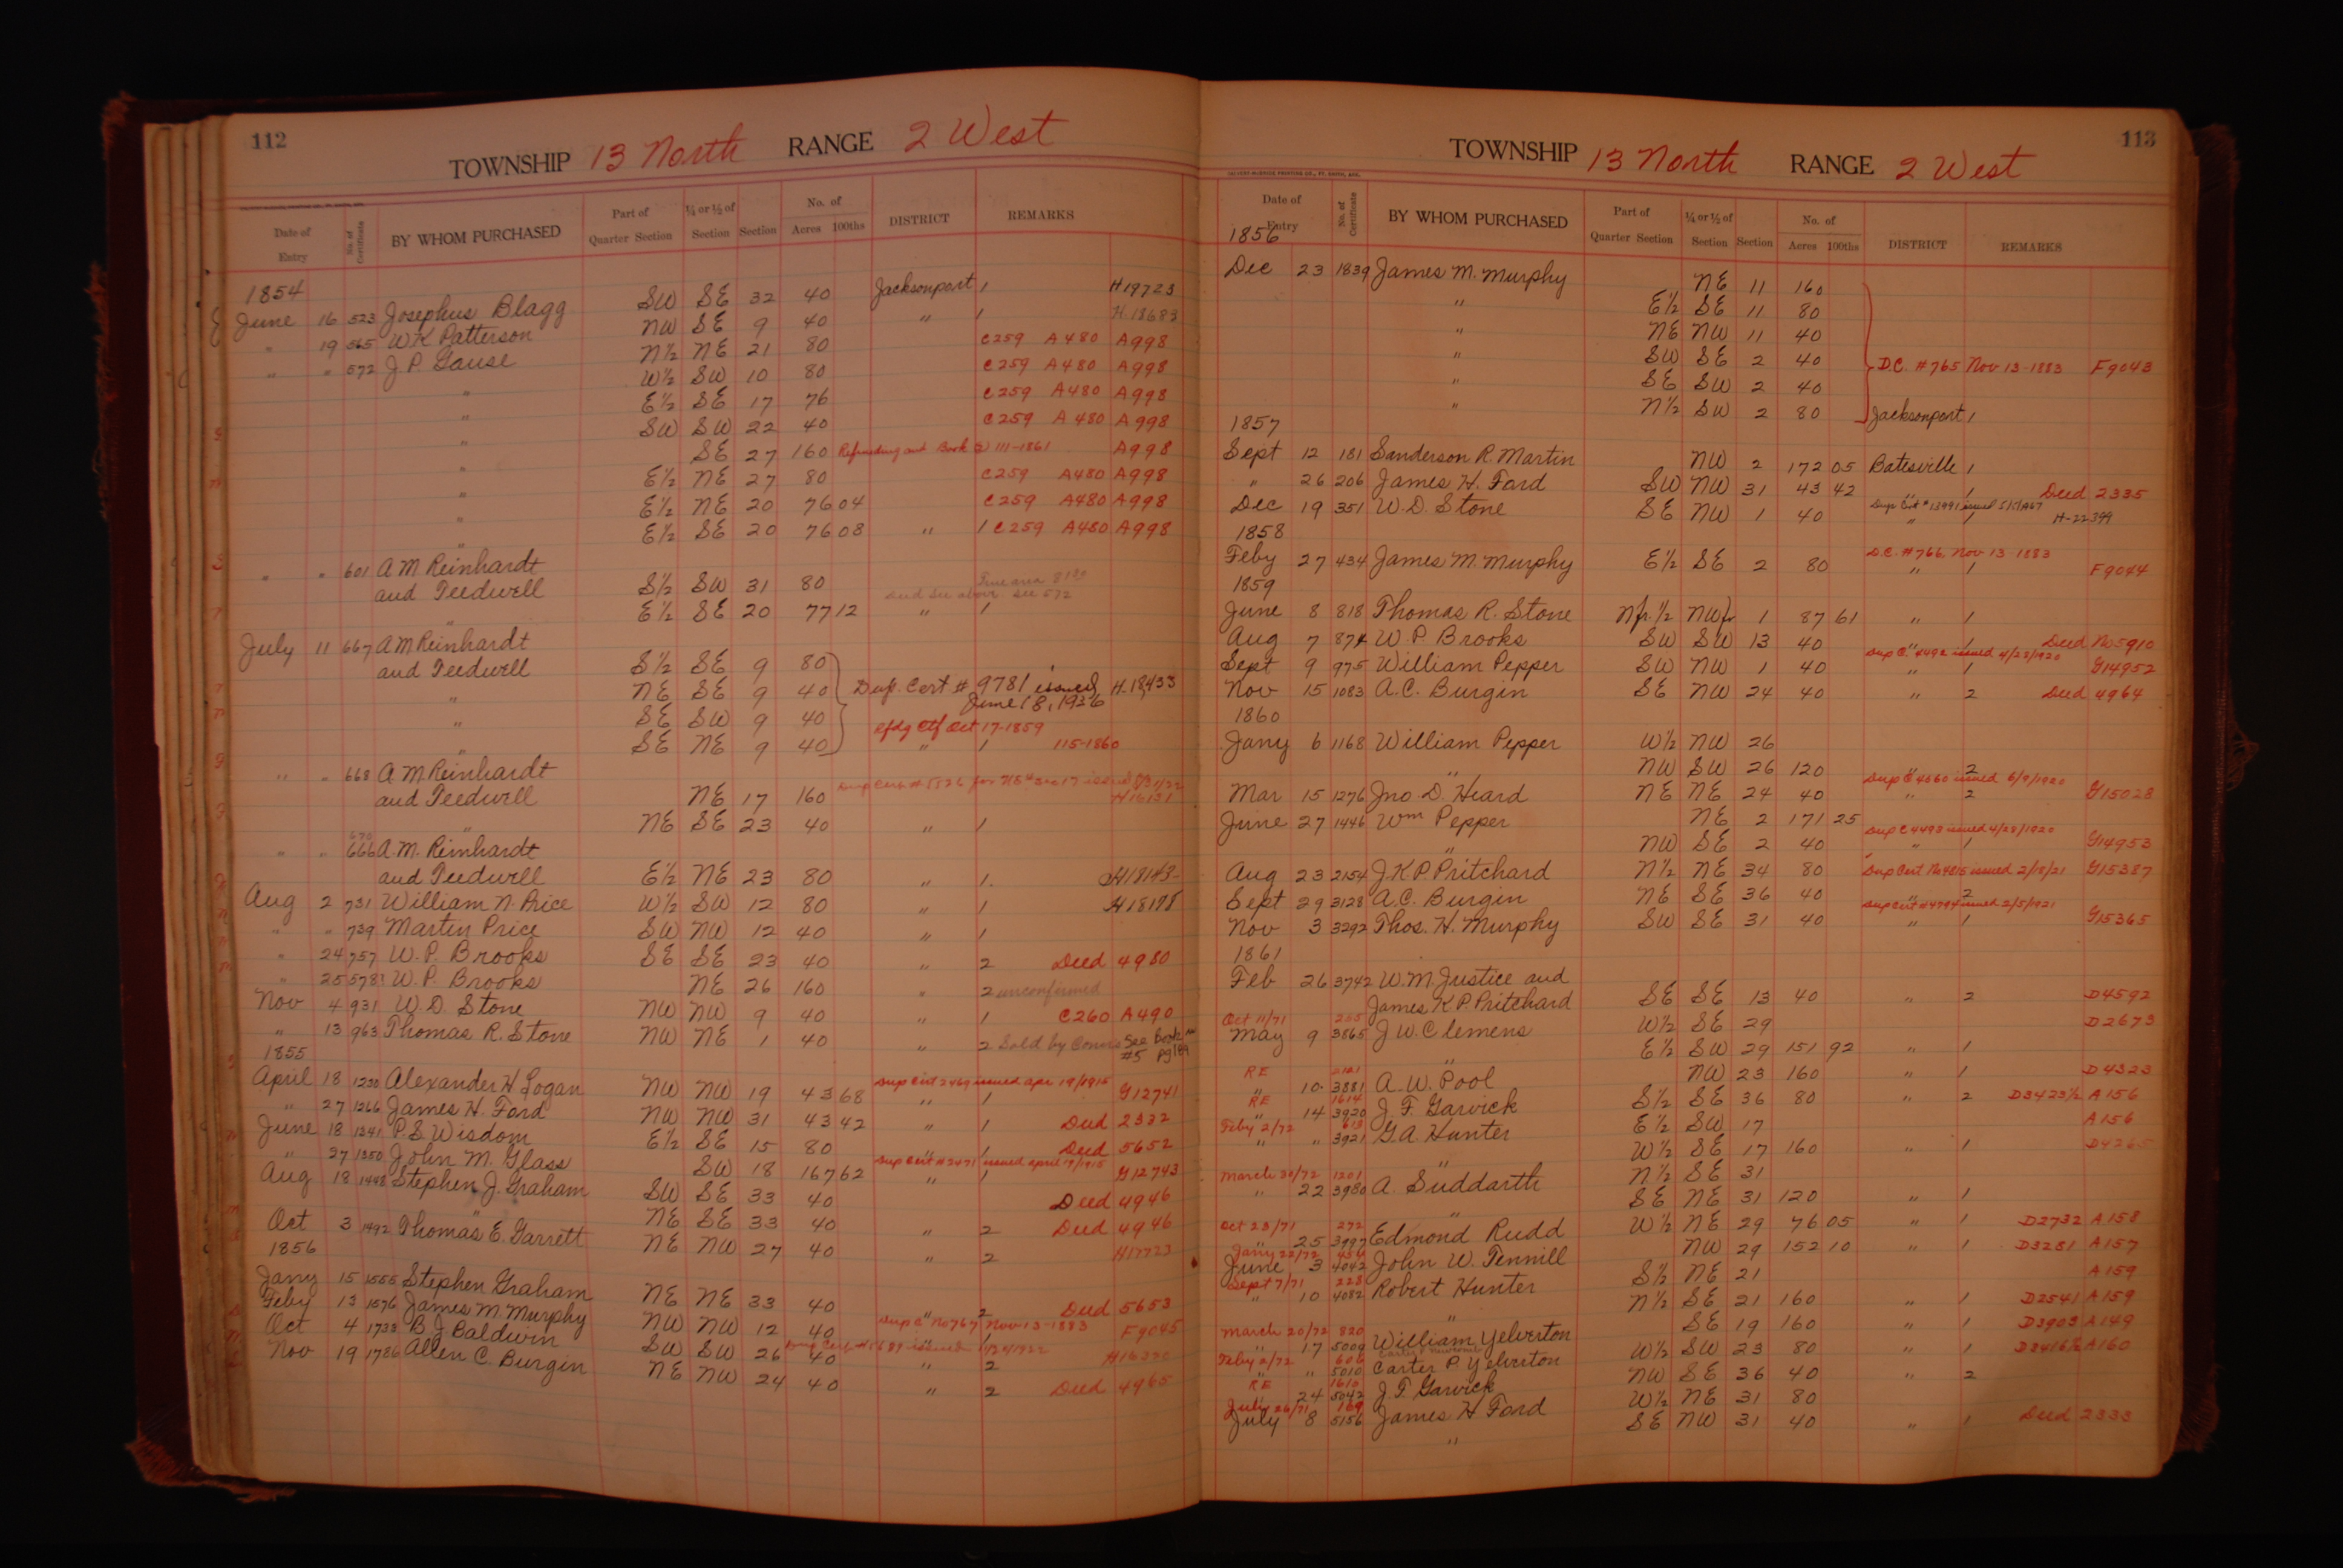 112
TOWNSHIP 13 North RANGE 2 West
Date of Entry No. of Certificate BY WHOM PURCHASED Part of Quarter Section ¼ or ½ of Section Section No. of Acres 100ths DISTRICT REMARKS
1854
June 16 523 Josephus Blagg SW SE 32 40 Jacksonport 1 H19723
" 19 565 W K Patterson NW SE 9 40 " 1 H.18683
" " 572 J P Gause N½ NE 21 80 C259 A480 A998
" W½ SW 10 80 C259 A480 A998
" E½ SE 17 76 C259 A480 A998
" SW SW 22 40 C259 A480 A998
" SE 27 160 Refunding act Book 111-1861 A998
" E½ NE 27 80 C259 A480 A998
" E½ NE 20 76 04 C259 A480 A998
" E½ SE 20 76 08 " 1 C259 A480 A998
" " 601 A M Reinhardt
and Tredwell S½ SW 31 80
" E½ SE 20 77 12 " 1
July 11 667 A M Reinhardt
and Tredwell S½ SE 9 80
" NE SE 9 40 Dupl. Cert # 9781 issued June 18, 1936 H.18,433
" SE SW 9 40 Rfdg Ctf Oct 17-1859
" SE NE 9 40 " 1 115-1860
" " 668 A M Reinhardt
and Tredwell NE 17 160 H16131
" NE SE 23 40 " 1
670
" " 666 A. M. Reinhardt
and Tredwell E½ NE 23 80 " 1. H18143
Aug 2 731 William N. Price W½ SW 12 80 " 1 H18198
" " 739 Martin Price SW NW 12 40 " 1
" 24 757 W. P. Brooks SE SE 23 40 " 2 Deed 4980
" 25 578? W. P. Brooks NE 26 160 " 2 unconfirmed
Nov 4 931 W. D. Stone NW NW 9 40 " 1 C260 A490
" 13 963 Thomas R. Stone NW NE 1 40 " 2 Sold by See Book #5 pg 189
1855
April 18 1230 Alexander H Logan NW NW 19 43 68 Dup Cert 2469 issued apr 19/1915 " 1 G12741
" 27 1266 James H. Ford NW NW 31 43 42 " 1 Deed 2332
June 18 1341 P. S. Wisdom E½ SE 15 80 " 1 Deed 5652
" 27 1350 John M. Glass SW 18 167 62 Dup Cert #2471 issued april 19/1915 " 1 G12743
Aug 18 1448 Stephen J. Graham SW SE 33 40 Deed 4946
" NE SE 33 40 " 2 Deed 4946
Oct 3 1492 Thomas E. Garrett NE NW 27 40 " 2 H17723
1856
Jany 15 1555 Stephen Graham NE NE 33 40 " 2 Deed 5653
Feby 13 1576 James M. Murphy NW NW 12 40 Dup C No 767 Nov 13-1883 " 1 F9045
Oct 4 1733 B J Baldwin SW SW 26 40 " 2 H16320
Nov 19 1786 Allen C. Burgin NE NW 24 40 " 2 Deed 4965
113
TOWNSHIP 13 North RANGE 2 West
Date of Entry No. of Certificate BY WHOM PURCHASED Part of Quarter Section ¼ or ½ of Section Section No. of Acres 100ths DISTRICT REMARKS
1856
Dec 23 1839 James M. Murphy NE 11 160
" E½ SE 11 80
" NE NW 11 40
" SW SE 2 40 D.C. #765 Nov 13-1883 F9043
" SE SW 2 40
" N½ SW 2 80 Jacksonport 1
1857
Sept 12 181 Sanderson R. Martin NW 2 172 05 Batesville 1
" 26 206 James H. Ford SW NW 31 43 42 " 1 Deed 2335
Dec 19 351 W. D. Stone SE NW 1 40 Dup Cert #13991 issued " 1 H-22399
1858
Feby 27 434 James M. Murphy E½ SE 2 80 D.C. #766 Nov 13-1883 " 1 F9044
1859
June 8 818 Thomas R. Stone Nfr.½ NWfr 1 87 61 " 1
Aug 7 874 W. P. Brooks SW SW 13 40 " 1 Deed No 5910
Sept 9 975 William Pepper SW NW 1 40 Dup C. 4492 issued 4/28/1920 " 1 G14952
Nov 15 1083 A. C. Burgin SE NW 24 40 " 2 Deed 4964
1860
Jany 6 1168 William Pepper W½ NW 26
" NW SW 26 120 " 2
Mar 15 1276 Jno D. Heard NE NE 24 40 Dup C 4560 issued 6/9/1920 " 2 G15028
June 27 1446 Wm Pepper NE 2 171 25
" NW SE 2 40 Dup C 4493 issued 4/28/1920 " 1 G14953
Aug 23 2154 J. K P. Pritchard N½ NE 34 80 Dup Cert No 4815 issued 2/18/21 G15387
Sept 29 3128 A. C. Burgin NE SE 36 40 " 2
Nov 3 3292 Thos. H. Murphy SW SE 31 40 Dup Cert #4794 issued 2/5/1921 " 1 G15365
1861
Feb 26 3742 W. M. Justice and
James K. P. Pritchard SE SE 13 40 " 2 D4592
Oct 11/71 255
May 9 3865 J W. Clemens W½ SE 29 D2673
" E½ SW 29 151 92 " 1
RE 2121
" 10 3881 A. W. Pool NW 23 160 " 1 D4323
RE 1614
" 14 3920 J. F. Garvick S½ SE 36 80 " 2 D3423½ A156
Feby 2/72 613
" " 3921 G. A. Hunter E½ SW 17 A156
" W½ SE 17 160 " 1 D4265
March 30/72 1201
" 22 3980 A. Suddarth N½ SE 31
" SE NE 31 120 " 1
Oct 23/71 272
" 25 3997 Edmond Rudd W½ NE 29 76 05 " 1 D2732 A158
Jany 22/72 454
June 3 4042 John W. Tennill NW 29 152 10 " 1 D3281 A157
Sept 7/71 228
" 10 4082 Robert Hunter S½ NE 21 A159
" N½ SE 21 160 " 1 D2541 A159
March 20/72 820
" 17 5009 William Yelverton SE 19 160 " 1 D3903 A149
Feby 2/72 606
" " 5010 Carter P. Yelverton W½ SW 23 80 " 1 D3416½ A160
RE 1610
" 24 5042 J. F. Garvick NW SE 36 40 " 2
July 26/71 169
July 8 5156 James H Ford W½ NE 31 80
" SE NW 31 40 " 1 Deed 2333